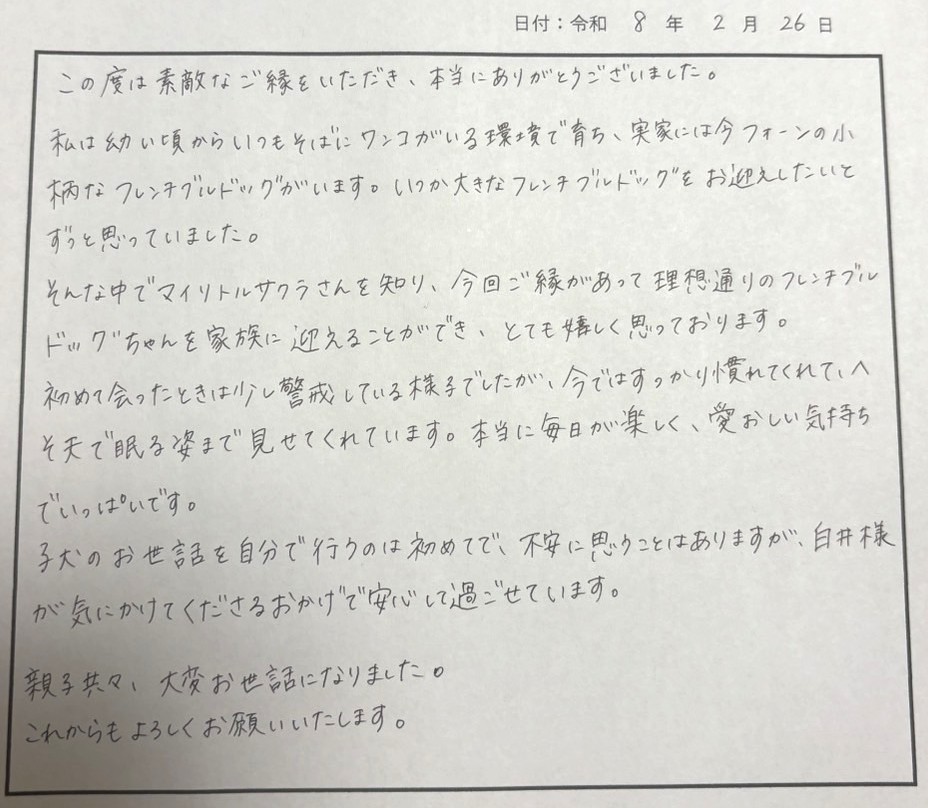 日付：令和 8 年 2 月 26 日
この度は素敵なご縁をいただき、本当にありがとうございました。
私は幼い頃からいつもそばにワンコがいる環境で育ち、実家には今フォーンの小
柄なフレンチブルドッグがいます。いつか大きなフレンチブルドッグをお迎えしたいと
ずっと思っていました。
そんな中でマイリトルサクラさんを知り、今回ご縁があって理想通りのフレンチブル
ドッグちゃんを家族に迎えることができ、とても嬉しく思っております。
初めて会ったときは少し警戒している様子でしたが、今ではすっかり慣れてくれて、へ
そ天で眠る姿まで見せてくれています。本当に毎日が楽しく、愛おしい気持ち
でいっぱいです。
子犬のお世話を自分で行うのは初めてで、不安に思うことはありますが、白井様
が気にかけてくださるおかげで安心して過ごせています。
親子共々、大変お世話になりました。
これからもよろしくお願いいたします。